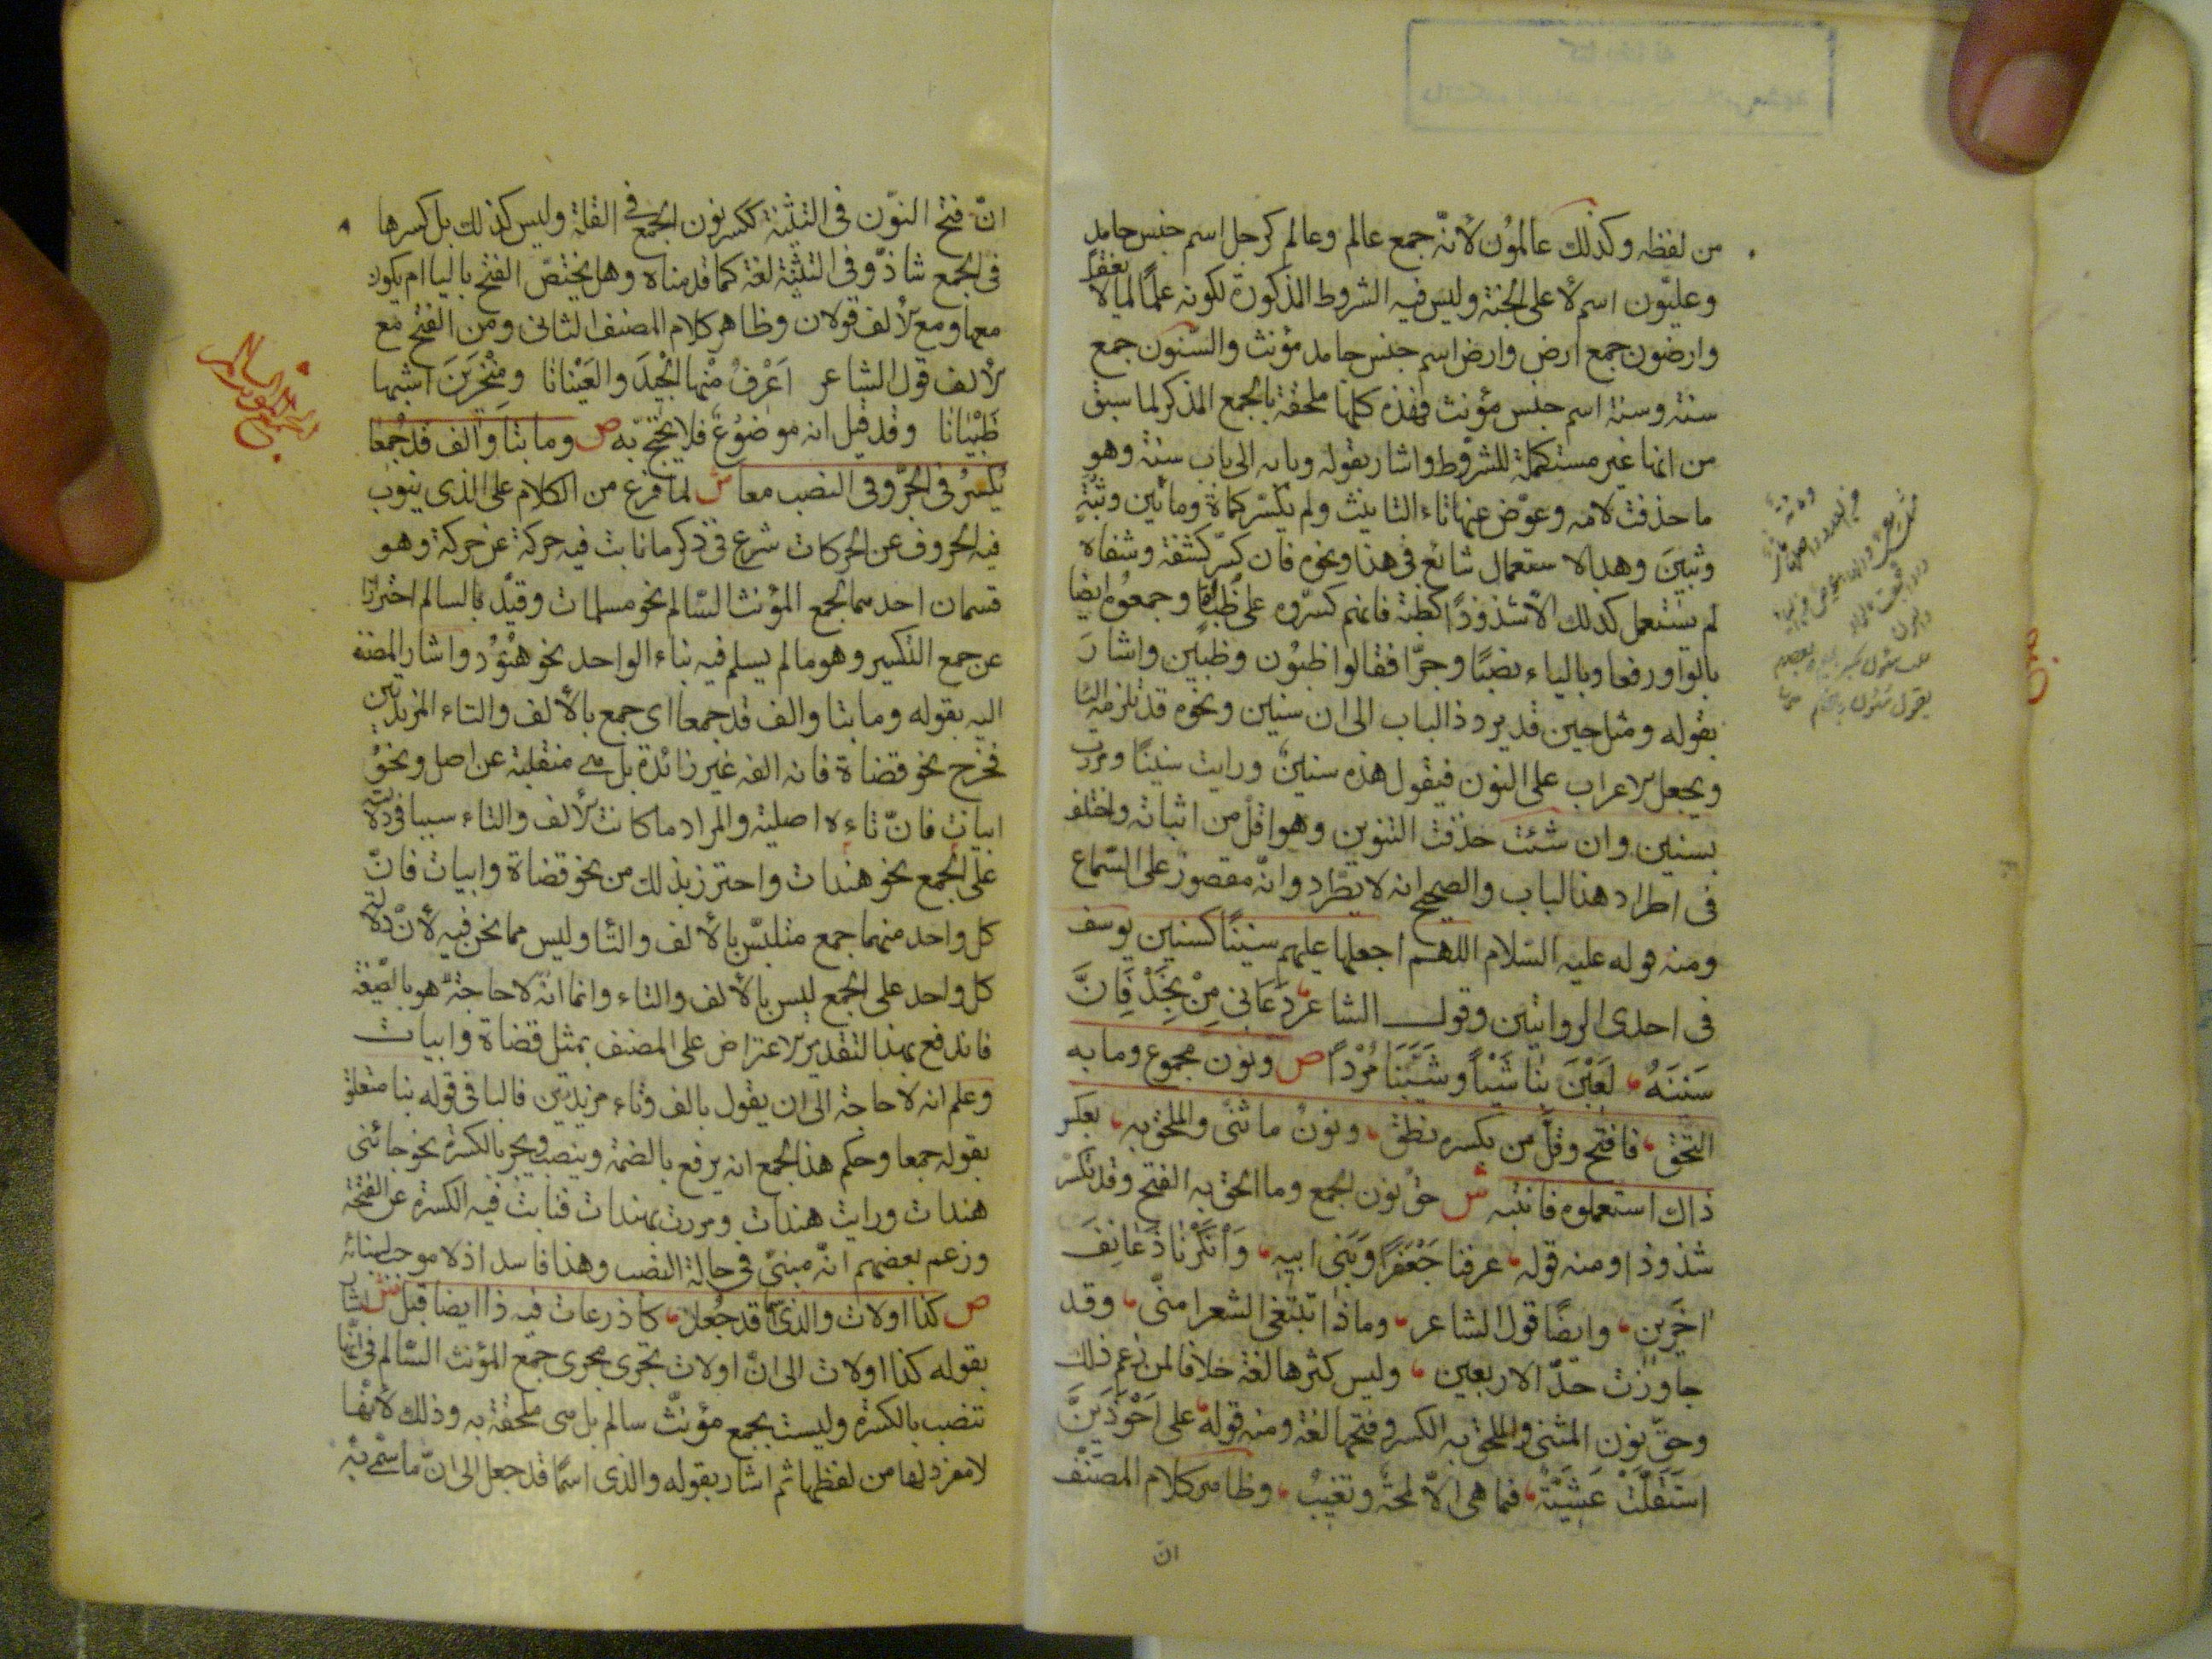 من لفظه وكذلك عالمون لأنّه جمع عالم وعالم كرجل اسم جنس جامد
وعليّون اسم لأعلى الجنة وليس فيه الشروط المذكورة لكونه علمًا لما لا يعقل
وارضون جمع ارض وارض اسم جنس جامد مؤنث والسّنون جمع
سنة وسنة اسم جنس مؤنث فهذه كلها ملحقة بالجمع المذكر لما سبق
من انها غير مستكملة للشروط واشار بقوله وبابه الى باب سنة وهو
ما حذفت لامه وعوّض عنها تاء التانيث ولم يكسّر كمائة ومأين وثبة
وثبين وهذا الاستعمال شائع في هذا ونحوه فان كسّر كشفة وشفاه
لم يستعمل كذلك الّا شذوذًا كظبة فانهم كسّروه على ظُباةٍ وجمعوه ايضا
بالواو رفعا وبالياء نصبًا وجرّا فقالوا ظبون وظبين واشار
بقوله ومثل حين قد يرد ذا الباب الى ان سنين ونحوه قد تلزمه اليا
ويجعل الاعراب على النون فيقول هذه سنينٌ ورايت سنينًا ومررت
بسنين وان شئت حذفت التنوين وهو اقلّ من اثباته واختلف
في اطراد هذا الباب والصحيح انه لا يطّراد وانّه مقصور على السّماع
ومنه قوله عليه السّلام اللهم اجعلها عليهم سنينًا كسنين يوسف
في احدى الروايتين وقول الشاعر دَعَانِى مِنْ نَجْدَ فَاِنَّ
سَنِنَهُ لَعَبْنَ بنا شَيْباً وشَيَّبَنَا مُرْدًا ص ونون مجموع وما به
التحق فافتح وقلّ من بكسره نطق ونون ما ثنى والملحق به بعكس
ذاك استعملوه فانتبه ش حق نون الجمع وما الحق به الفتح وقد تكسر
شذوذا ومنه قوله عرفنا جَعْفَرًا وَبَنى ابيه وَاَنْكَرْنا ذَعَانِفَ
اخَرِين وايضًا قول الشاعر وماذا تبتغى الشعرا منّى وقد
جاوزت حدّ الاربعين وليس كثرها لغة خلافا لمن زعم ذلك
وحقّ نون المثنى والملحق به الكسر وفتحها لغة ومنه قوله على اَحْوَذَيَينَّ
اسْتَقَلَّتْ عَشَيَّةً فما هى الّا لمحة وتغيبُ وظاهر كلام المصنّف
انّ
انّ فتح النوّن في التثنية ككسر نون الجمع في القلة وليس كذلك بل كسرها
في الجمع شاذّ وفي التثنية لغة كما قدمناه وهل يختصّ الفتح باليا ام يكون
معها ومع الألف قولان وظاهر كلام المصنف الثانى ومن الفتح مع
الألف قول الشاعر اَعْرِفُ منْها الجْيدَ والعَيْنانا ومِنْخِرَيَنَ اشبها
ظَبْيَانَا وقد قيل انه موضوعٌ فلا يحتج به ص وما بتا والف قد جُمعا
يُكْسَرُ في الجرّ وفي النصب معا ش لما فرغ من الكلام على الذى ينوب
فيه الحروف عن الحركات شرع في ذكر ما نابت فيه حركة عن حركة وهو
قسمان احدهما جمع المؤنث السّالم نحو مسلمات وقيدّ بالسالم احترازا
عن جمع التكسير وهو ما لم يسلم فيه بناء الواحد نحو هُنُوُد واشار المصنف
اليه بقوله وما بتا والف قد جمعا اى جمع بالألف والتاء المزيدتين
فخرج نحو قضاة فانه الفه غير زائدة بل هى منقلبة عن اصل ونحو
ابيات فانّ تاءه اصلية والمراد ما كانت الألف والتاء سببا فى دلالته
على الجمع نحو هندات واحترز بذلك من نحو قضاة وابيات فانّ
كل واحد منهما جمع متلبّس بالألف والتّا وليس مما نحن فيه لأنّ دلالة
كل واحد على الجمع ليس بالألف والتاء وانما هو بالصّيغة
فاندفع بهذا التقدير الاعتراض على المصنف بمثل قضاة وابيات
وعلم انه لا حاجة الى ان يقول بالف وتاء مزيدتين فالبا في قوله بتا متعلق
بقوله جمعا وحكم هذا الجمع انه يرفع بالضمة وينصب ويجر بالكسرة نحو جائنى
هندات ورايت هندات ومررت بهندات فنابت فيه الكسرة عن الفتحة
وزعم بعضهم انّه مبنىّ فى حالة النصب وهذا فاسد اذ لا موجب لبنائه
ص كذا اولات والذى اسما قد جُعل كأذرعات فيه ذا ايضا قبل ش اشار
بقوله كذا اولات الى انّ اولات تجرى مجرى جمع المؤنث السّالم فى انّها
تنصب بالكسرة وليست بجمع مؤنثّ سالم بل هى ملحقة به وذلك لأنّها
لا مفرد لها من لفظها ثم اشار بقوله والذى اسمًا قد جعل الى انّ ما سمّى به